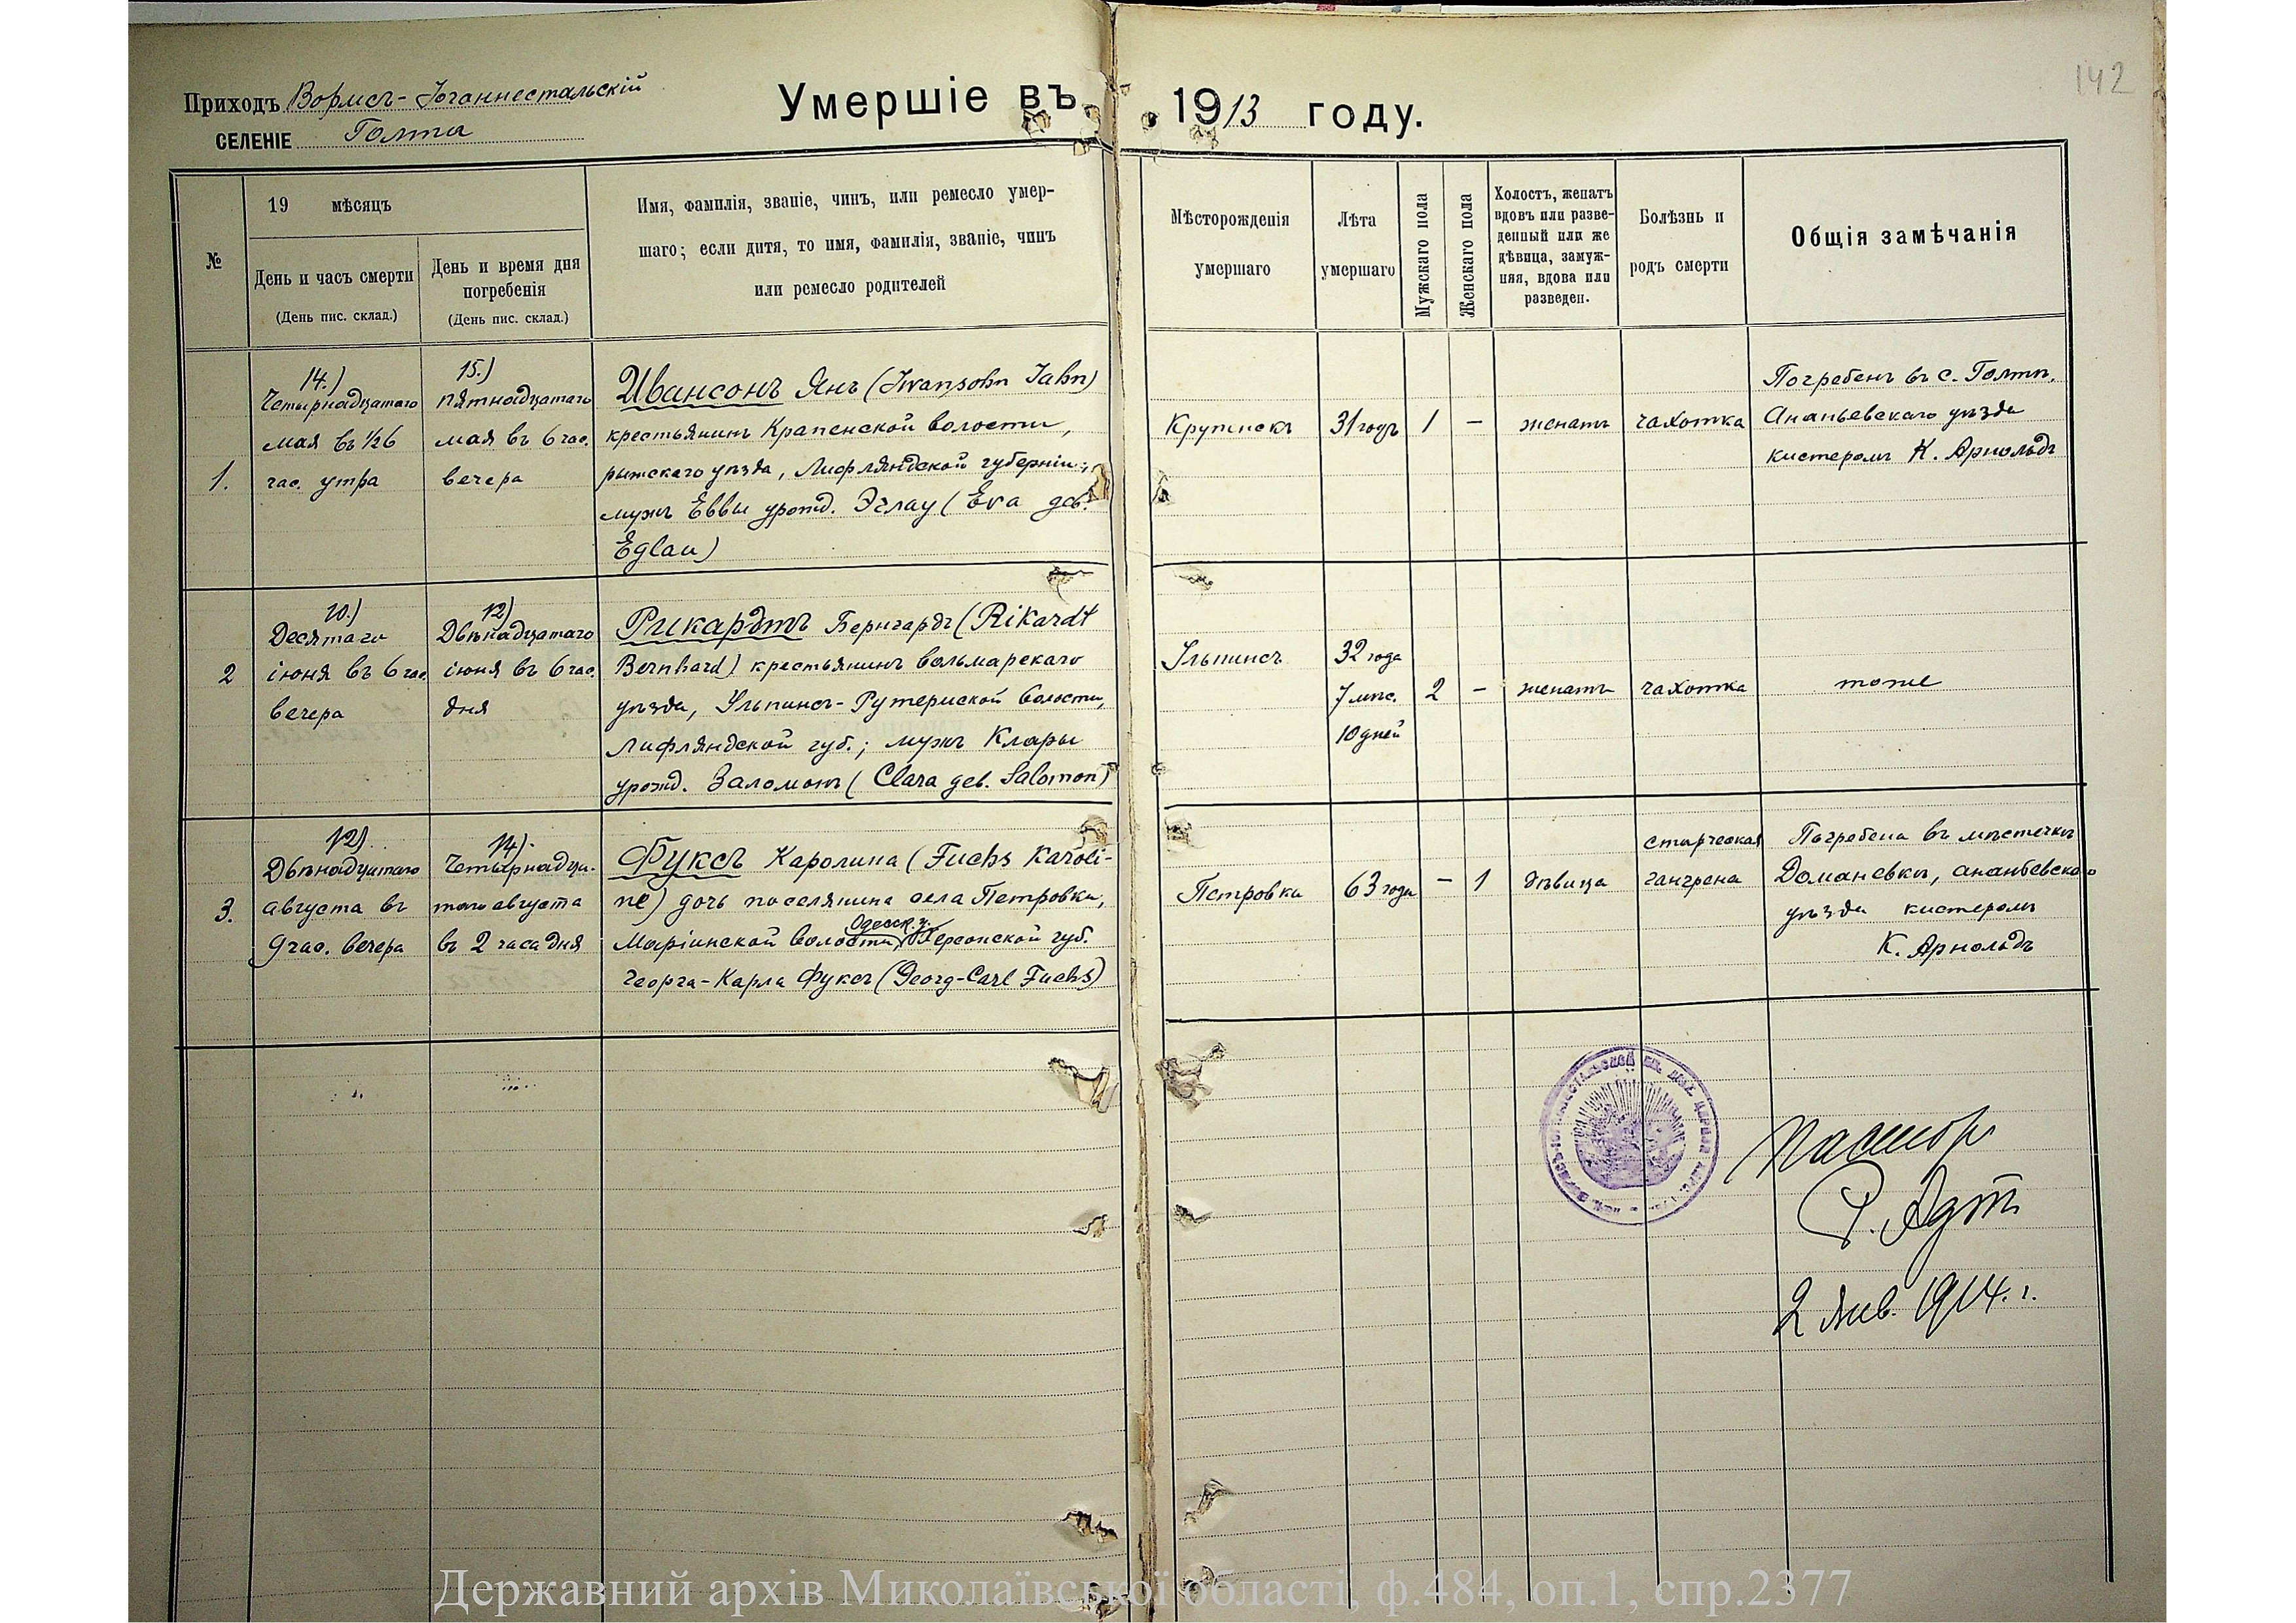 142
Приходъ Вормсъ-Іоганнестальскій
СЕЛЕНІЕ Голта
Умершіе въ 1913 году.
№
19 мѣсяцъ
День и часъ смерти
(День пис. склад.)
День и время дня
погребенія
(День пис. склад.)
Имя, фамилія, званіе, чинъ, или ремесло умер-
шаго; если дитя, то имя, фамилія, званіе, чинъ
или ремесло родителей
Мѣсторожденія
умершаго
Лѣта
умершаго
Мужскаго пола
Женскаго пола
Холостъ, женатъ
вдовъ или разве-
денный или же
дѣвица, замуж-
няя, вдова или
разведен.
Болѣзнь и
родъ смерти
Общія замѣчанія
1.
14.)
Четырнадцатаго
мая въ ½6
час. утра
15.)
пятнадцатаго
мая въ 6 час.
вечера
Ивансонъ Янъ (Iwansohn Jahn)
крестьянинъ Крапенской волости,
рижскаго уѣзда, Лифляндской губерніи;
мужъ Еввы урожд. Эглау (Eva дев.
Eglau)
31 годъ
1
–
женатъ
чахотка
Погребенъ въ с. Голтѣ,
Ананьевскаго уѣзда
кистеромъ К. Арнольдъ
2
10.)
Десятаго
іюня въ 6 час.
вечера
12)
Двѣнадцатаго
іюня въ 6 час.
дня
Рикардтъ Бернгардъ (Rikardt
Bernhard) крестьянинъ вольмарскаго
уѣзда, Ульпинсъ-Рутернской волости,
Лифляндской губ.; мужъ Клары
урожд. Заломонъ (Clara дев. Salomon)
Ульпинсъ
32 года
7 мѣс.
10 дней
2
–
женатъ
чахотка
тоже
3.
12).
Двѣнадцатаго
августа въ
9 час. вечера
14).
Четырнадца-
таго августа
въ 2 часа дня
Фуксъ Каролина (Fuchs Karoli-
ne) дочь поселянина села Петровки,
Одесск. у.
Маріинской волости, Херсонской губ.
Георга-Карла Фуксъ (Georg-Carl Fuchs)
Петровка
63 года
–
1
дѣвица
старческая
гангрена
Погребена въ мѣстечкѣ
Доманевкѣ, ананьевскаго
уѣзда кистеромъ
К. Арнольдъ
Пасторъ
2 Янв. 1914. г.
Державний архів Миколаївської області, ф.484, оп.1, спр.2377